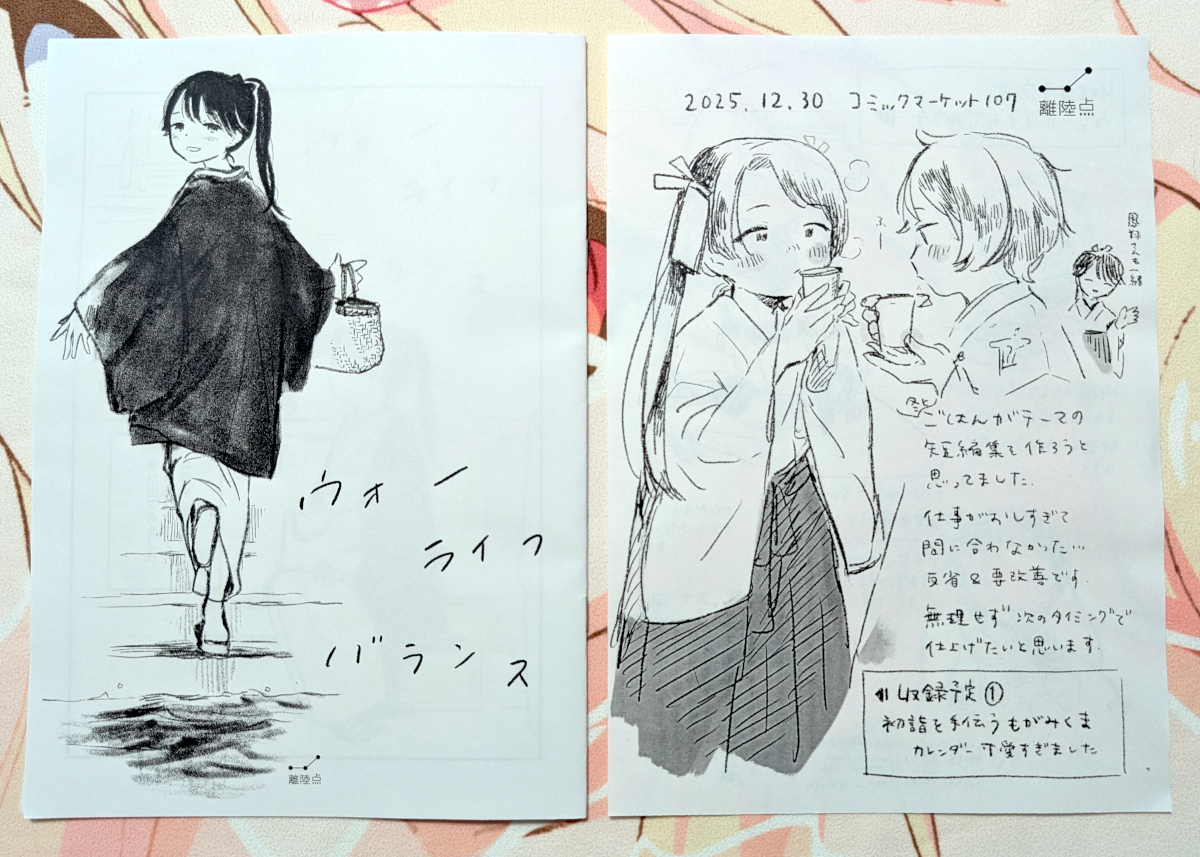 ウォー
ライフ
バランス
離陸点
2025.12.30 コミックマーケット107
離陸点
ふー
ごはんがテーマの
短編集を作ろうと
思ってました.
仕事がおしすぎて
間に合わなかった…
反省&要改善です.
無理せず次のタイミングで
仕上げたいと思います.
収録予定①
初詣を手伝うもがみくま
カレンダー可愛すぎました